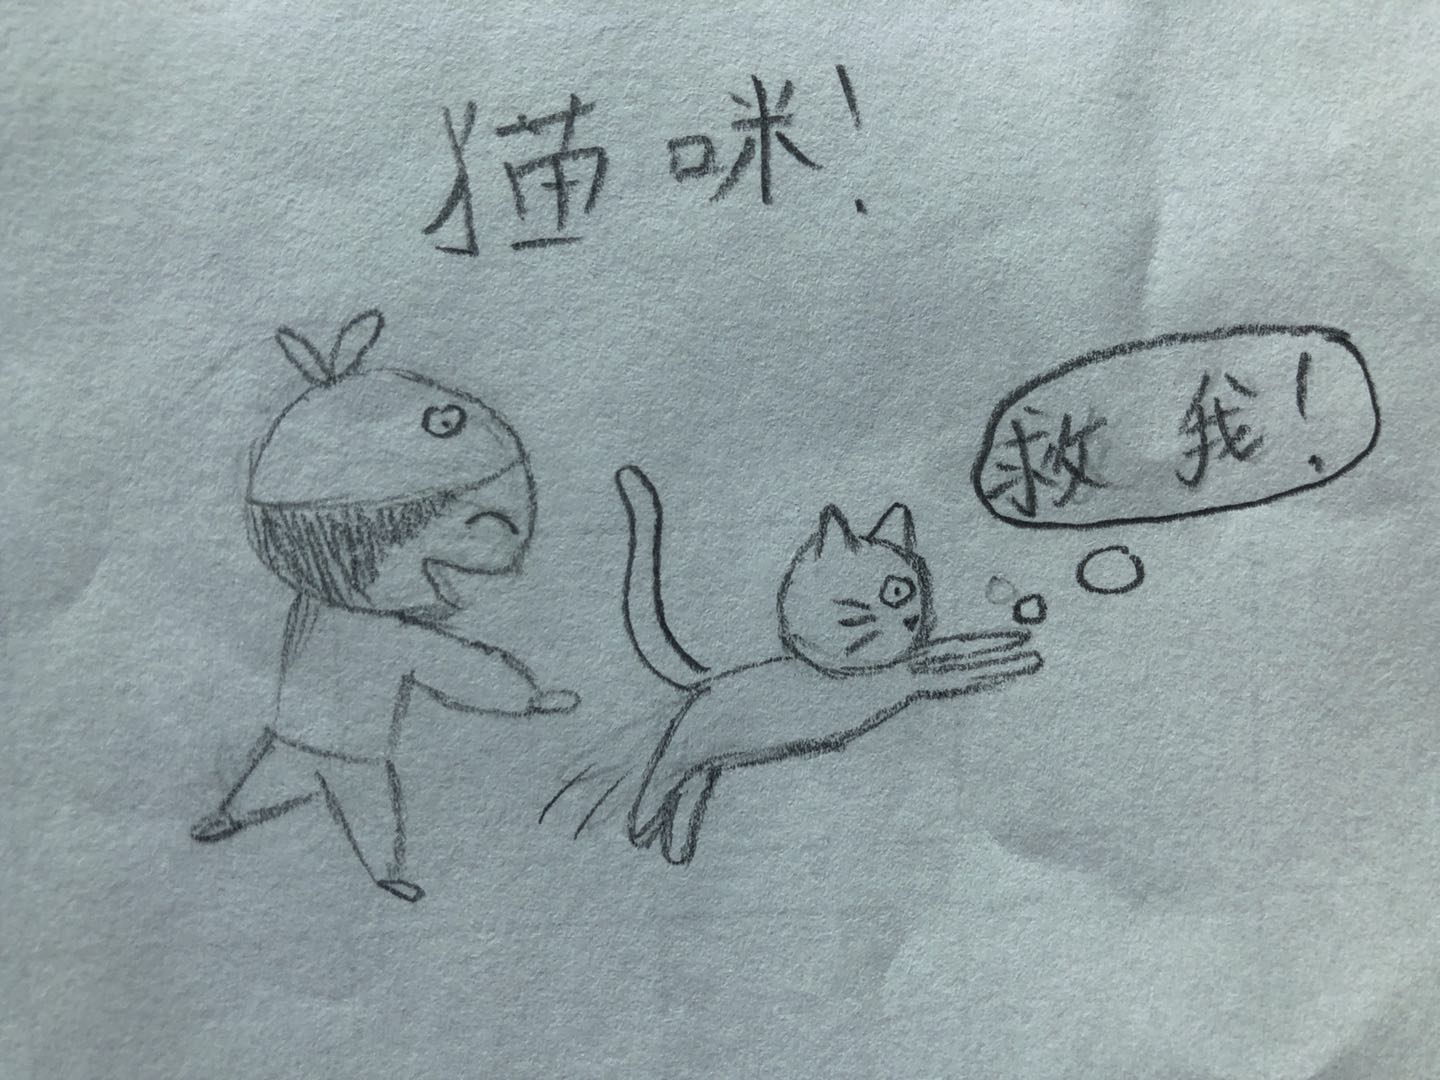 猫咪!
救我!